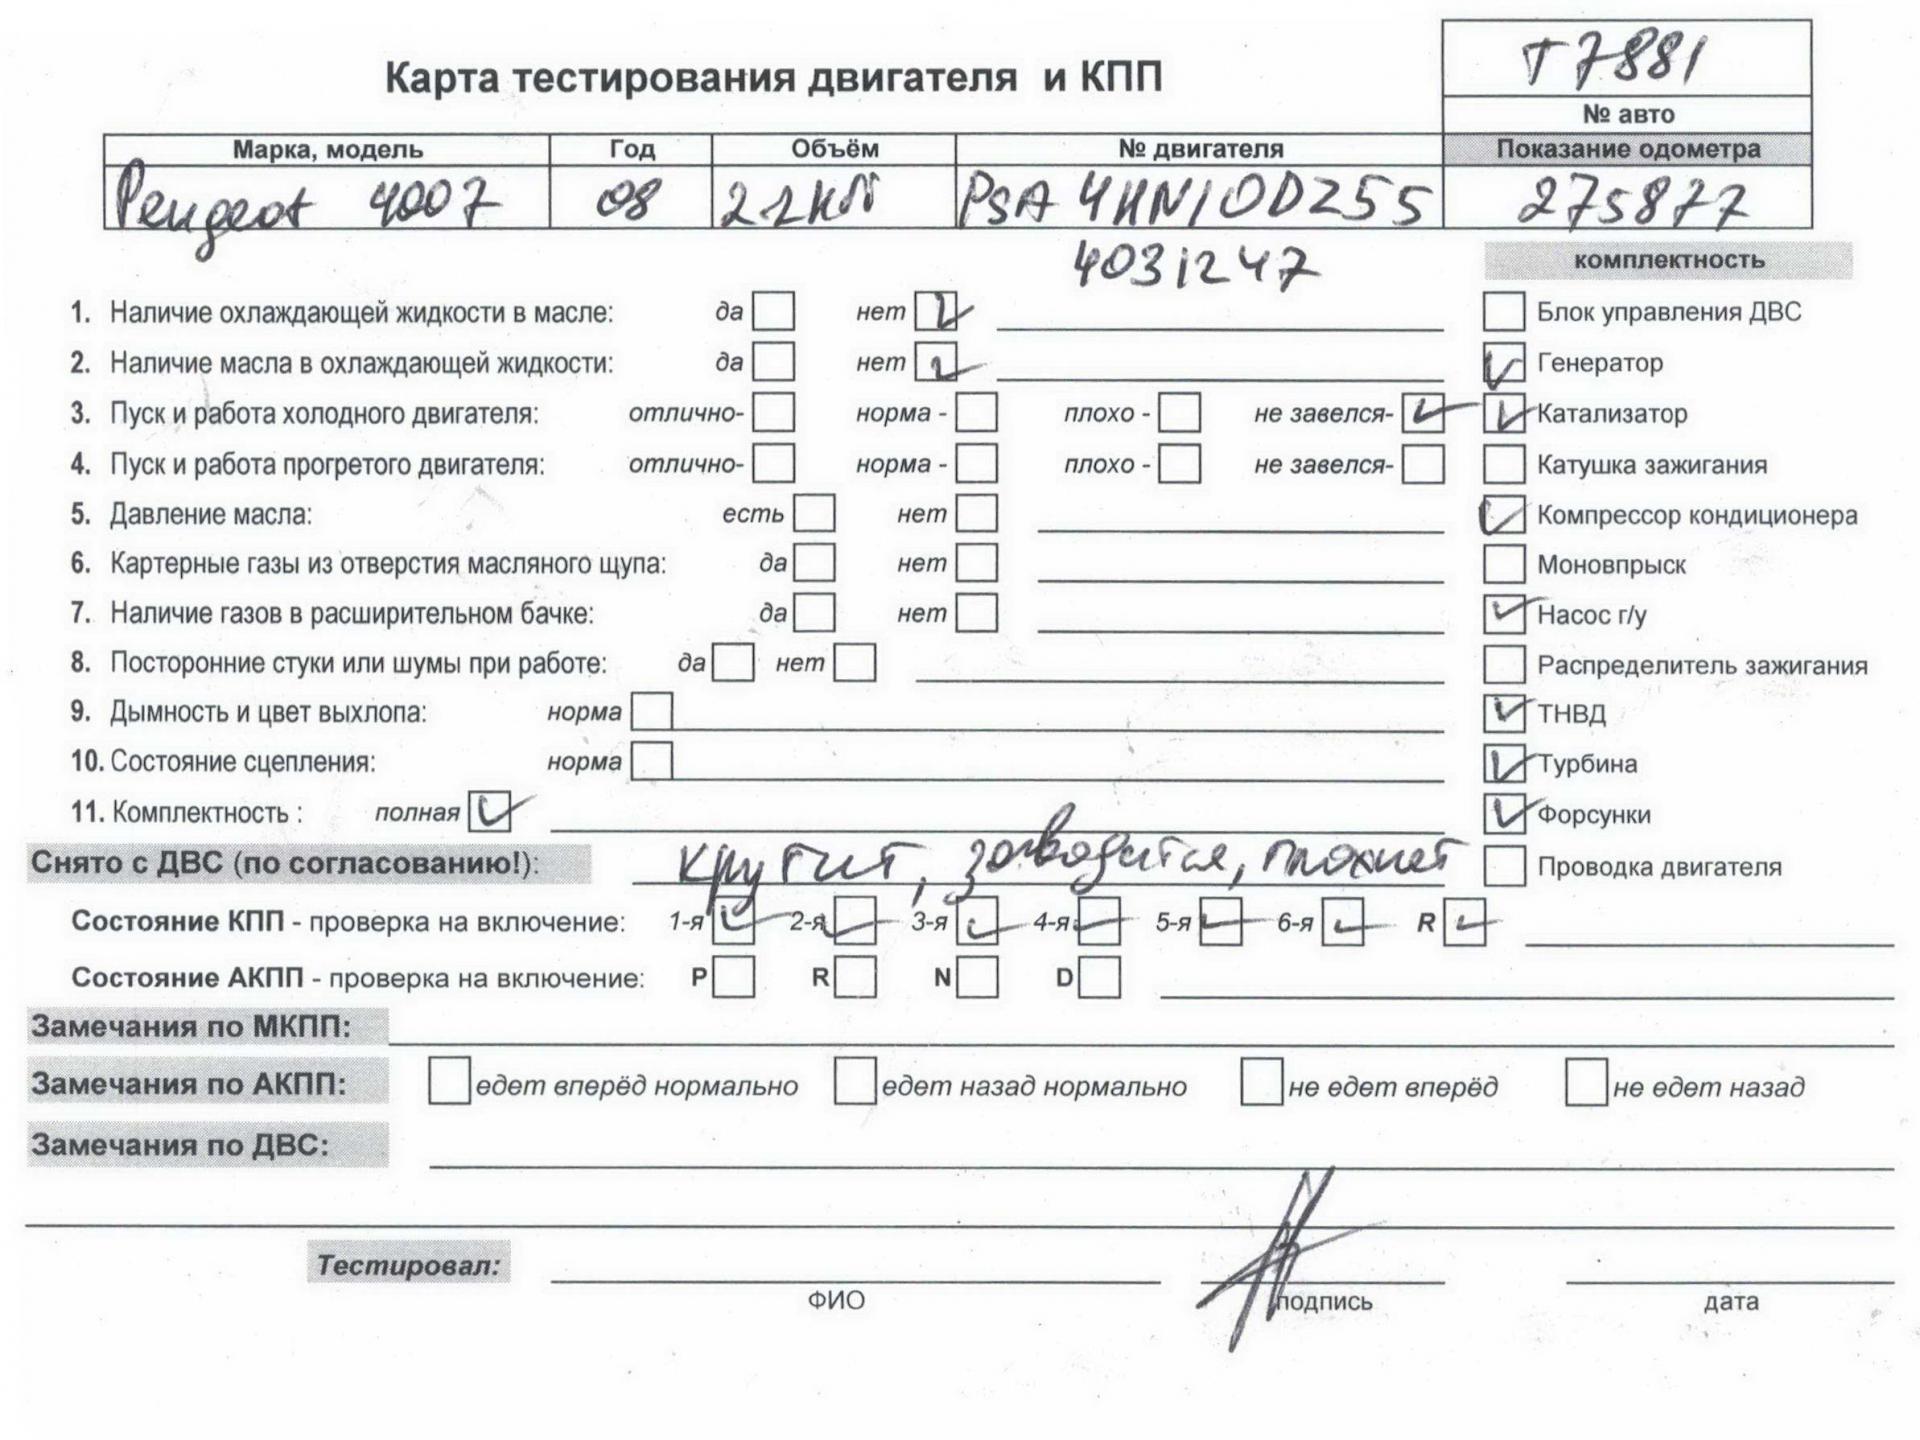 Т7881
Карта тестирования двигателя и КПП
№ авто
Марка, модель Год Объём № двигателя Показание одометра
Peugeot 4007 08 PSA 4HN10DZ55 275877
4031247
комплектность
1. Наличие охлаждающей жидкости в масле: да нет Блок управления ДВС
2. Наличие масла в охлаждающей жидкости: да нет Генератор
3. Пуск и работа холодного двигателя: отлично- норма - плохо - не завелся- Катализатор
4. Пуск и работа прогретого двигателя: отлично- норма - плохо - не завелся- Катушка зажигания
5. Давление масла: есть нет Компрессор кондиционера
6. Картерные газы из отверстия масляного щупа: да нет Моновпрыск
7. Наличие газов в расширительном бачке: да нет Насос г/у
8. Посторонние стуки или шумы при работе: да нет Распределитель зажигания
9. Дымность и цвет выхлопа: норма ТНВД
10. Состояние сцепления: норма Турбина
11. Комплектность : полная Форсунки
Снято с ДВС (по согласованию!): крутит, заводится, глохнет Проводка двигателя
Состояние КПП - проверка на включение: 1-я 2-я 3-я 4-я 5-я 6-я R
Состояние АКПП - проверка на включение: P R N D
Замечания по МКПП:
Замечания по АКПП: едет вперёд нормально едет назад нормально не едет вперёд не едет назад
Замечания по ДВС:
Тестировал:
ФИО подпись дата